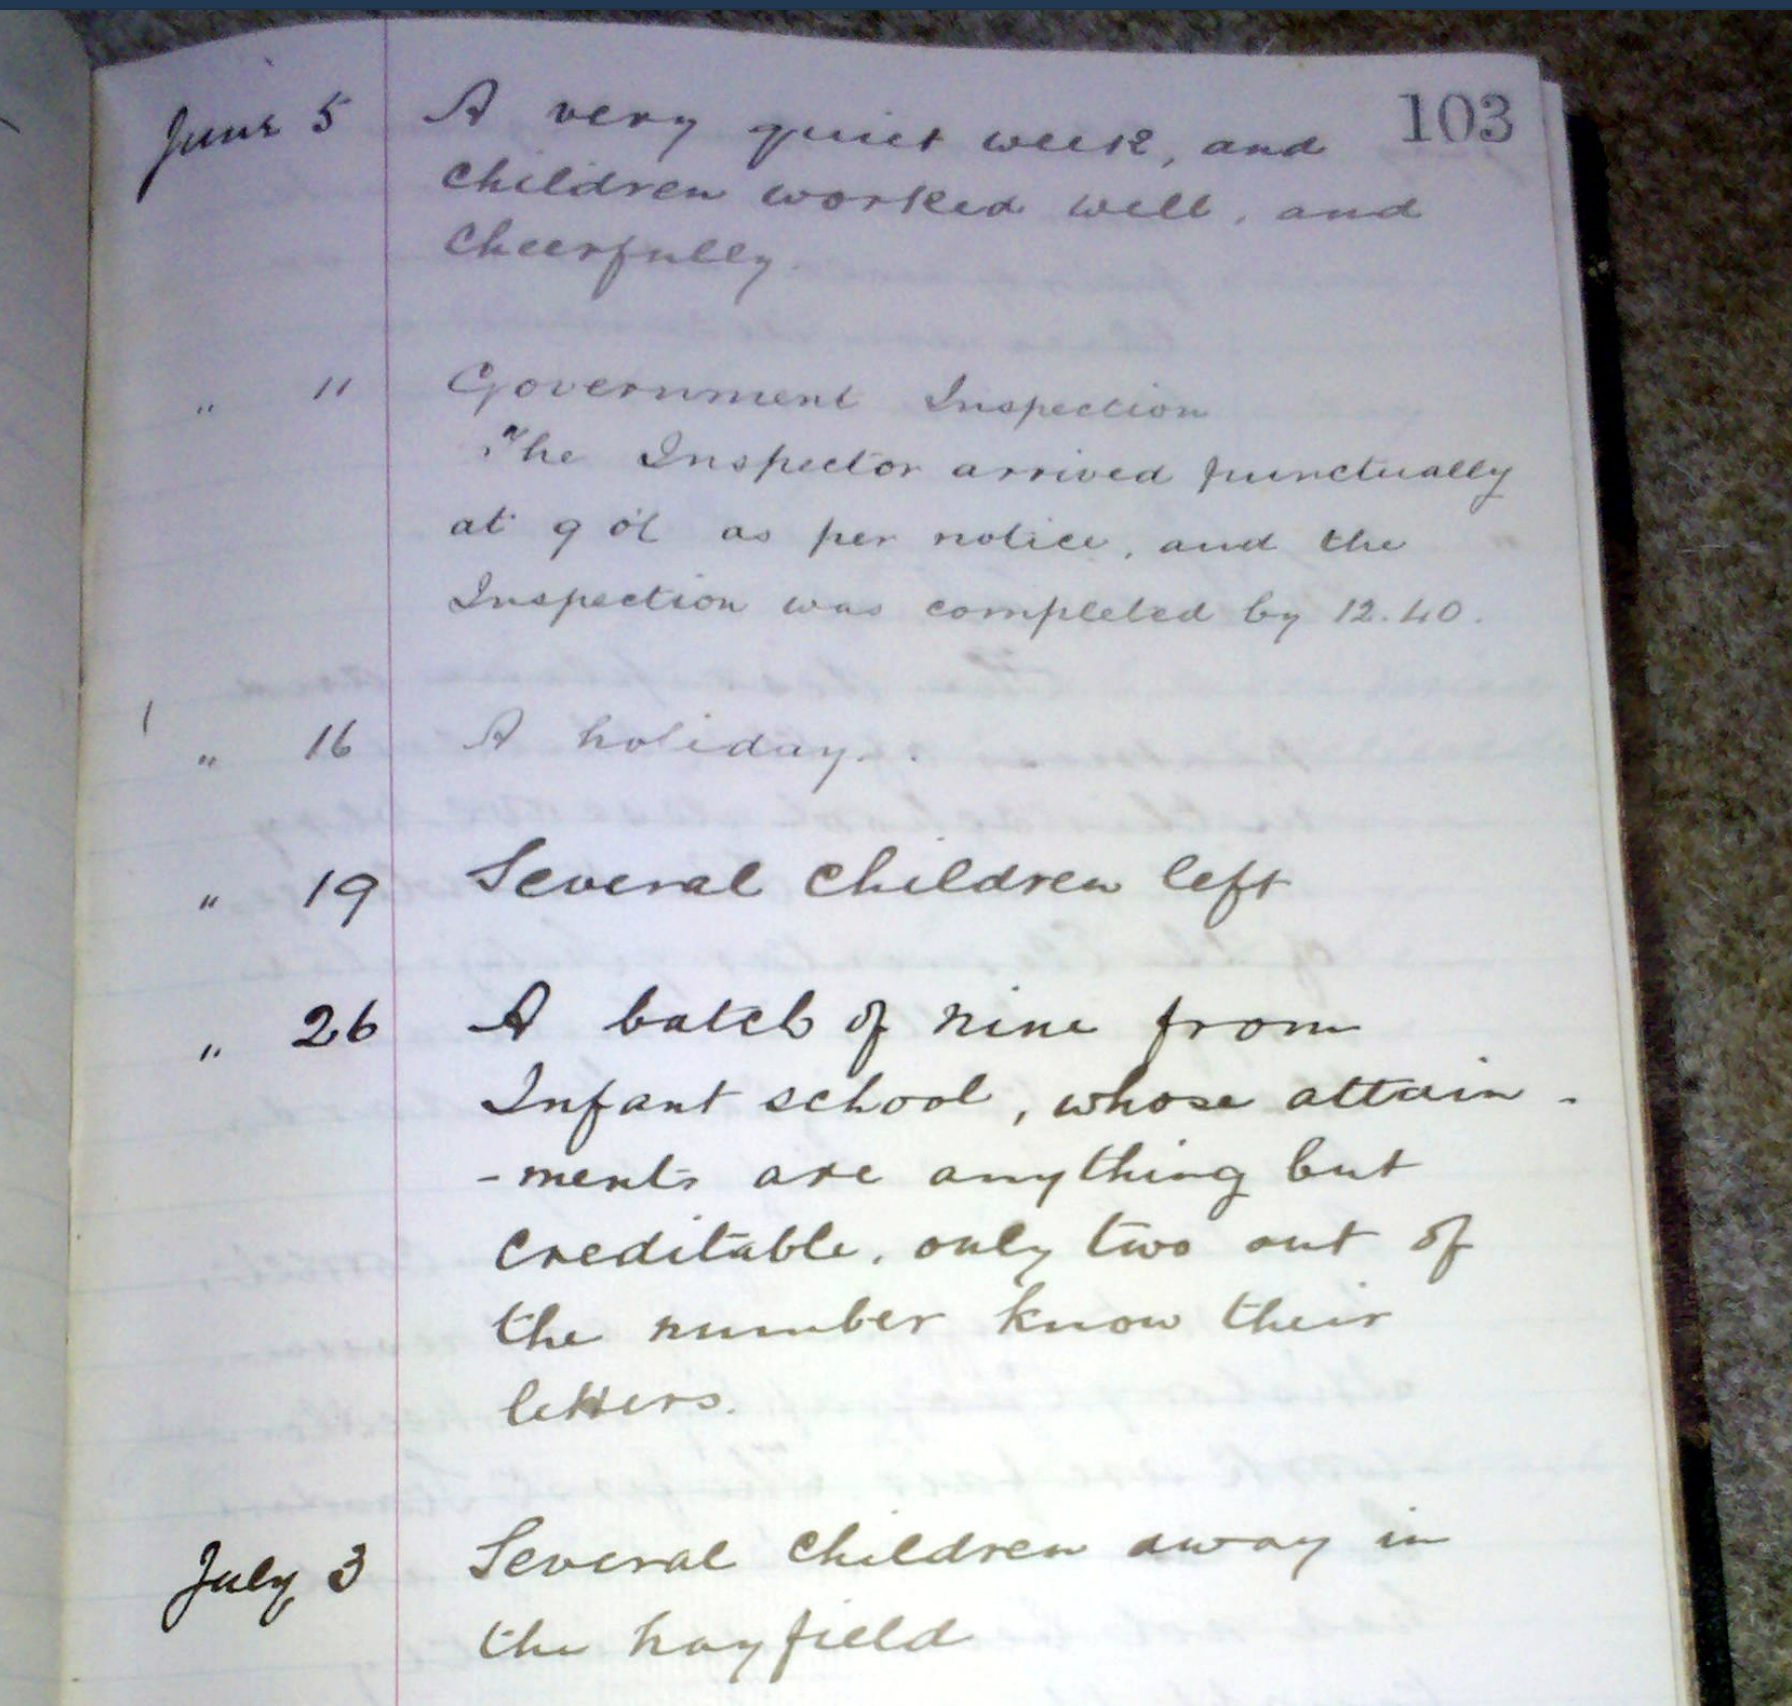 103
June 5 A very quiet week, and
children worked well, and
cheerfully.
" 11 Government Inspection
The Inspector arrived punctually
at 9 o'c as per notice, and the
Inspection was completed by 12.40.
" 16 A holiday.
" 19 Several children left
" 26 A batch of nine from
Infant school, whose attain-
-ments are anything but
creditable, only two out of
the number know their
letters.
July 3 Several children away in
the hayfield